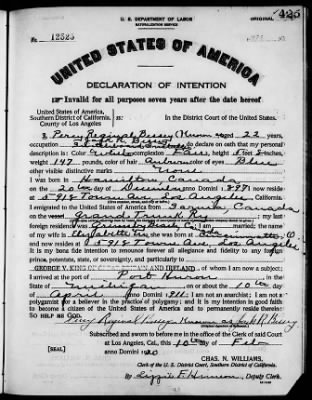 425
U. S. DEPARTMENT OF LABOR
NATURALIZATION SERVICE
ORIGINAL
No. 12525
UNITED STATES OF AMERICA
DECLARATION OF INTENTION
Invalid for all purposes seven years after the date hereof
United States of America,
Southern District of California.
County of Los Angeles
ss:
In the District Court of the United States.
I, Percy Reginald Bessey (Known aged 22 years,
occupation do declare on oath that my personal
description is: Color White complexion Fair, height 5 feet inches,
weight 147 pounds, color of hair Auburn color of eyes Blue
other visible distinctive marks None
I was born in Hamilton, Canada
on the 20th day of December anno Domini 1897; I now reside
at 5912 Towne Ave Los Angeles, California.
I emigrated to the United States of America from Sarnia, Canada
on the vessel Grand Trunk Ry; my last
foreign residence was Grimsby Beach, Can; I am married; the name
of my wife is she was born at
and now resides at 5912 Towne Ave, Los Angeles
It is my bona fide intention to renounce forever all allegiance and fidelity to any foreign
prince, potentate, state, or sovereignty, and particularly to
GEORGE V. KING OF AND IRELAND of whom I am now a subject;
I arrived at the port of Port Huron, in the
State of Michigan on or about the 10th day
of April anno Domini 1911: I am not an anarchist; I am not a
polygamist nor a believer in the practice of polygamy; and it is my intention in good faith
to become a citizen of the United States of America and to permanently reside therein:
SO HELP ME GOD.
Percy Reginald Bessey Known as R. Bessey
Subscribed and sworn to before me in the office of the Clerk of said Court
at Los Angeles, Cal., this 10th day of Feb
anno Domini 1920
[SEAL]
CHAS. N. WILLIAMS,
Clerk of the U. S. District Court, Southern District of California.
By Deputy Clerk.